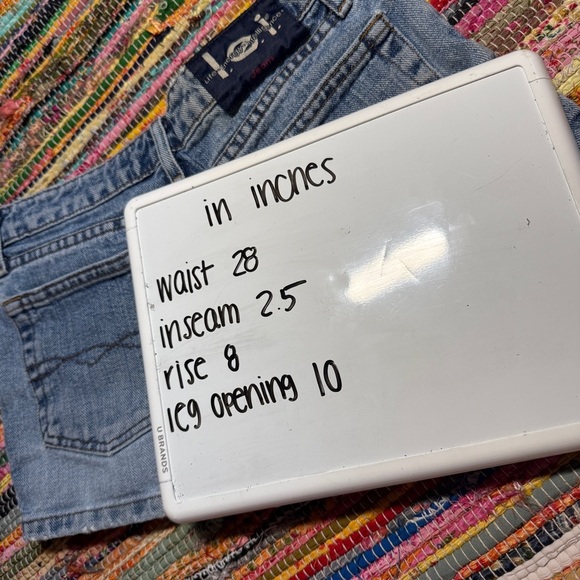 l.e.i
in inches
waist 28
inseam 2.5
rise 8
leg opening 10
U BRANDS